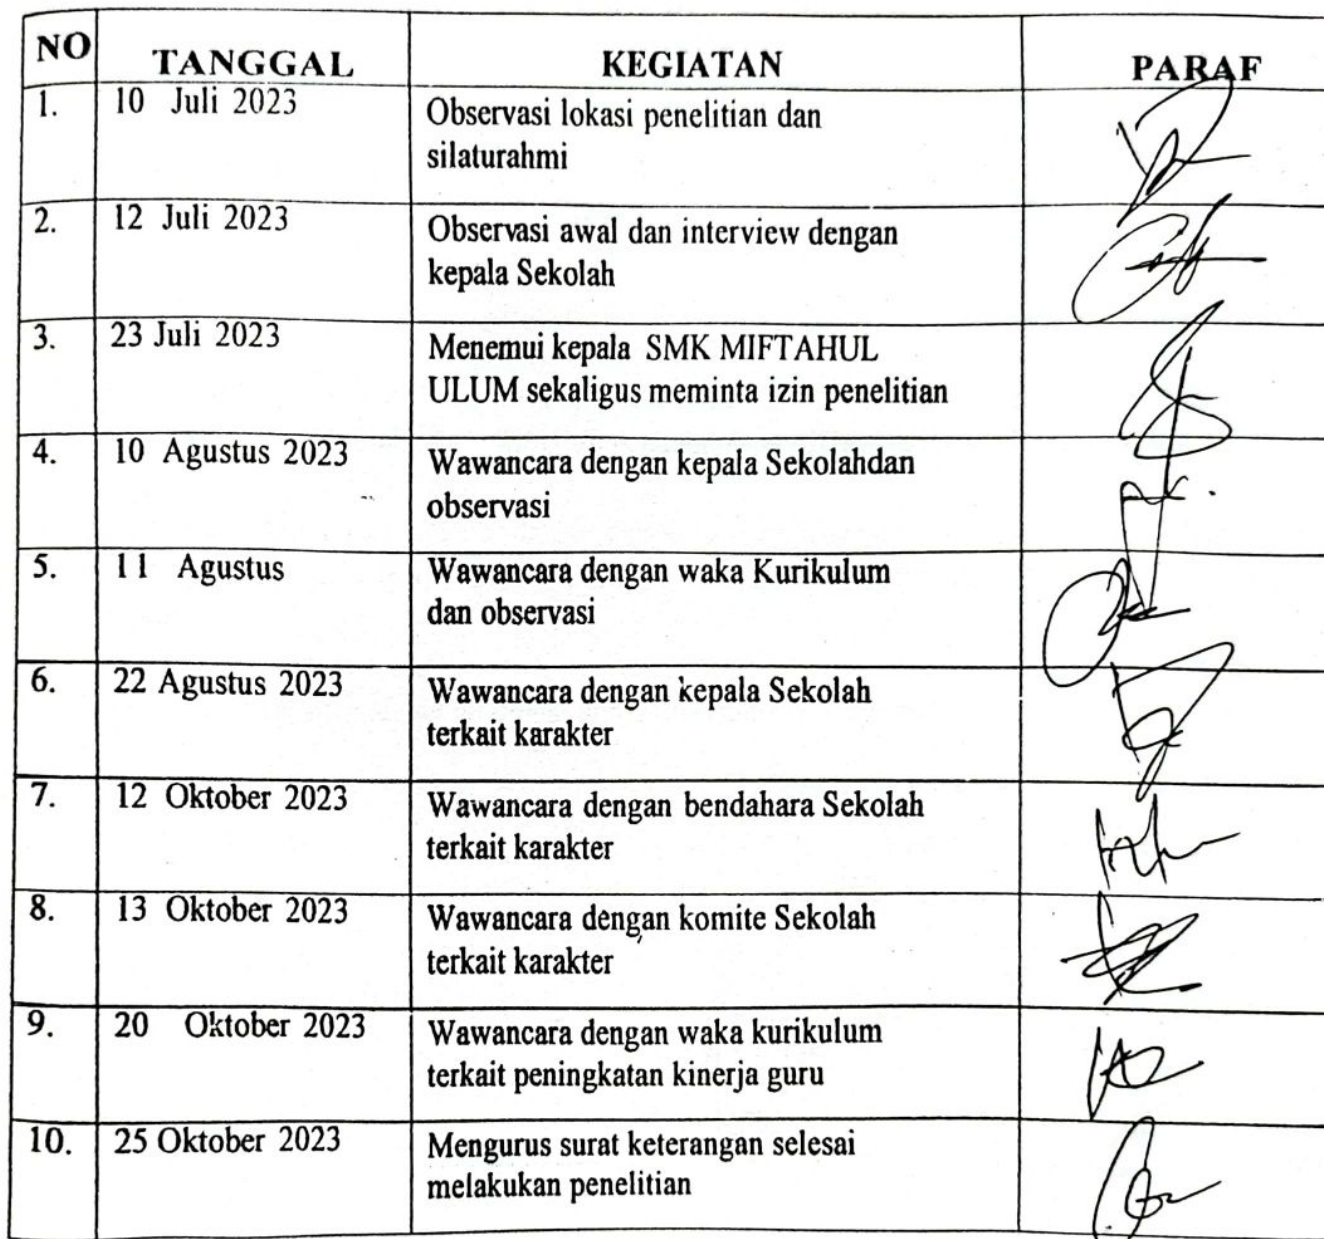 NO TANGGAL KEGIATAN PARAF
1. 10 Juli 2023 Observasi lokasi penelitian dan
silaturahmi
2. 12 Juli 2023 Observasi awal dan interview dengan
kepala Sekolah
3. 23 Juli 2023 Menemui kepala SMK MIFTAHUL
ULUM sekaligus meminta izin penelitian
4. 10 Agustus 2023 Wawancara dengan kepala Sekolahdan
observasi
5. 11 Agustus Wawancara dengan waka Kurikulum
dan observasi
6. 22 Agustus 2023 Wawancara dengan kepala Sekolah
terkait karakter
7. 12 Oktober 2023 Wawancara dengan bendahara Sekolah
terkait karakter
8. 13 Oktober 2023 Wawancara dengan komite Sekolah
terkait karakter
9. 20 Oktober 2023 Wawancara dengan waka kurikulum
terkait peningkatan kinerja guru
10. 25 Oktober 2023 Mengurus surat keterangan selesai
melakukan penelitian